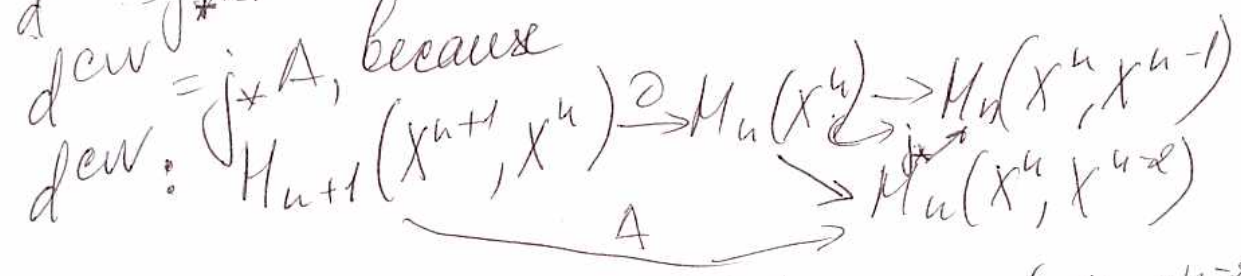 d^{CW} = j_* A, because
d^{CW}: H_{n+1}(X^{n+1}, X^n) \xrightarrow{∂} H_n(X^n) → H_n(X^n, X^{n-1})
j_*
H_n(X^n, X^{n-2})
A